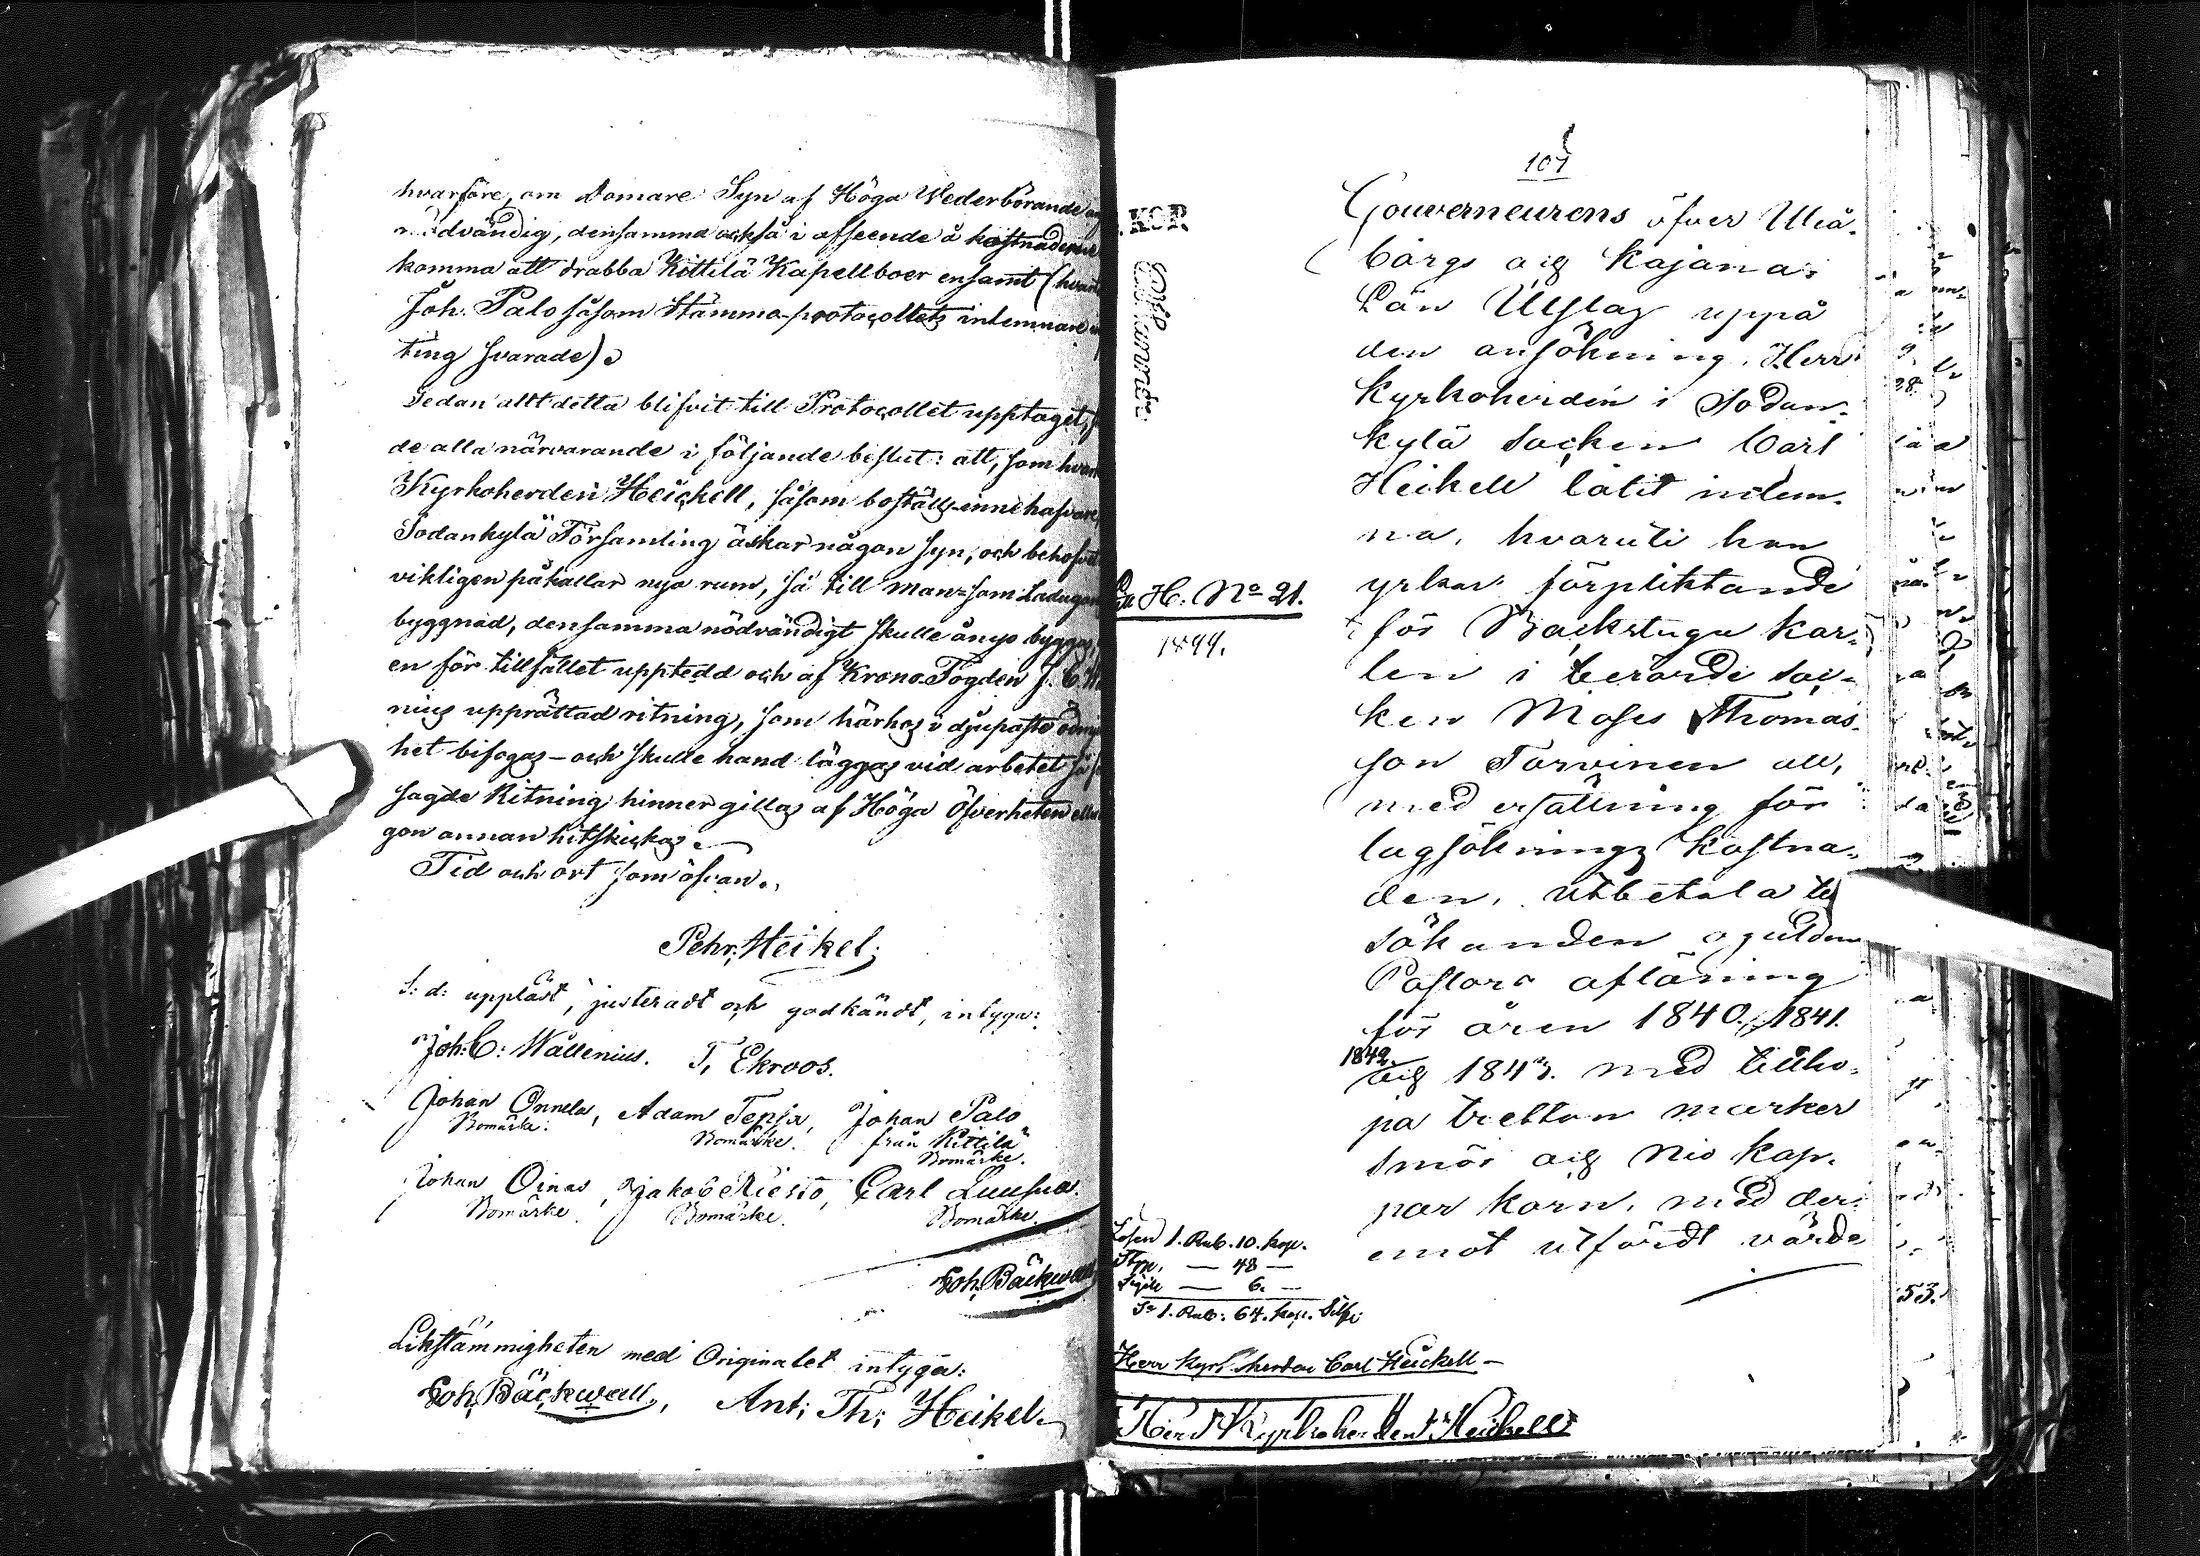 hvarföre, om Domare Syn af Höga Wederbörande
nödvändig, densamma också i afseende å kostnaderne
komma att drabba Kittilä Kapellboer ensamt (
Joh. Palo såsom Stämmo-protocollets inlemnare
ting svarade).
Sedan allt detta blifvit till Protocollet upptaget,
de alla närvarande i följande beslut: att, som
Kyrkoherden Heickell, såsom boställs-innehafvare,
Sodankylä Församling äskar någon syn, och behofvet
viktigen påkallar nya rum, så till Man- som Ladugårds
byggnad, densamma nödvändigt skulle ånyo byggas,
en för tillfället uppteedd och af Krono-Fogden J. C. 
nius upprättad ritning, som härhos i djupaste ödmju
het bifogas – och skulle hand läggas vid arbetet så
sagde Ritning hinner gillas af Höga Öfverheten eller
gon annan hitskickas.
Tid och ort som ofvan.
Pehr Heikel;
S: d: uppläst, justeradt och godkändt, intyga:
Joh: C: Wallenius. T, Ekroos.
Johan Onnela, Adam Tepsa, Johan Palo
Bomärke. Bomärke. från Kittilä
Bomärke.
Johan Oinas, Jakob Riesto, Carl Luusua.
Bomärke. Bomärke. Bomärke.
Joh. Bäckwall
Likstämmigheten med Originalet intyga:
Joh. Bäckwall, Ant: Th: Heikel.
107
Gouverneurens öfver Uleå-
borgs och Kajana
Län Utslag uppå
den ansökning, Herr
Kyrkoherden i Sodan-
kylä Socken Carl
Heikell låtit inlem-
na, hvaruti han
yrkar förpliktande
för Backstugu kar-
len i berörde Soc-
ken Moses Thomas-
son Tarvinen att,
med ersättning för
lagsöknings kostna-
den, utbetala till
sökanden oguldne
Pastors aflöning
för åren 1840., 1841.
1842
och 1843. med tillho-
pa tretton marker
smör och nio kap-
par korn, med der-
emot utfördt värde
H: No 21.
1844.
Lösen 1. Rub. 10. kop.
Stpp. — 48 —
Sigill — 6. —
Sa 1. Rub: 64. kop. Silfv
Herr Kyrkoherden Carl Heickell –
Herr Kyrkoherden Heickell
28
53.